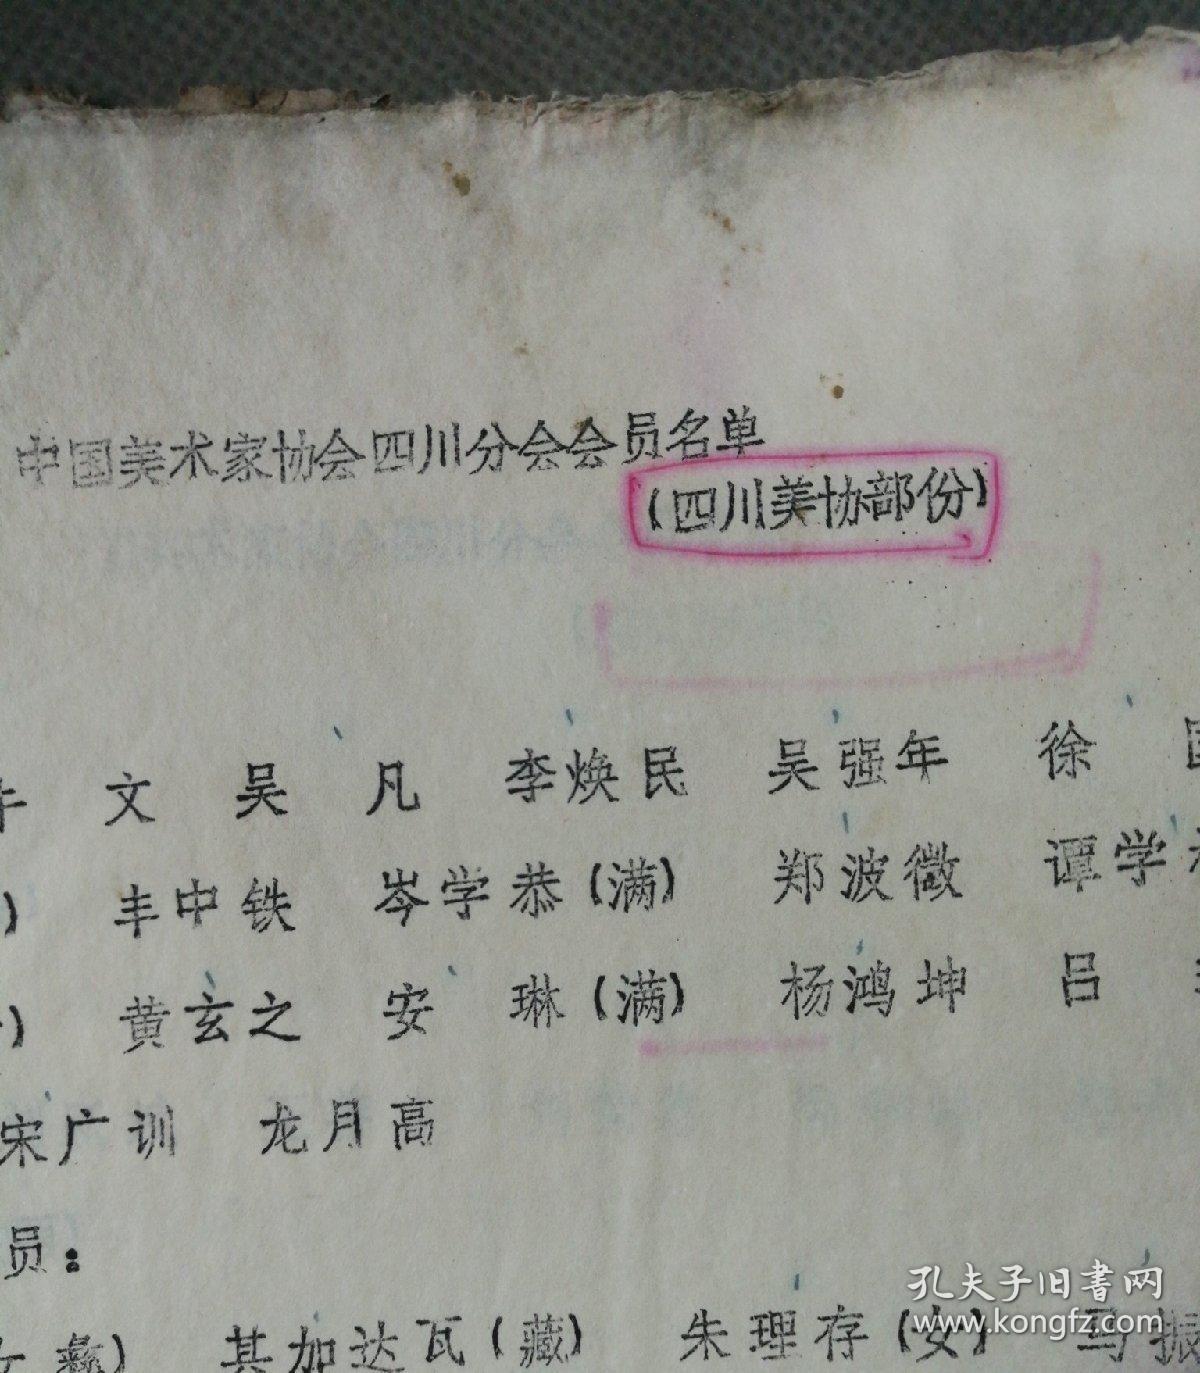 中国美术家协会四川分会会员名单
(四川美协部份)
牛 文 吴 凡 李焕民 吴强年 徐
) 丰中铁 岑学恭(满) 郑波微 谭学
) 黄玄之 安 琳(满) 杨鸿坤 吕
宋广训 龙月高
员：
彝) 其加达瓦(藏) 朱理存(女) 马振
孔夫子旧书网
www.kongfz.com